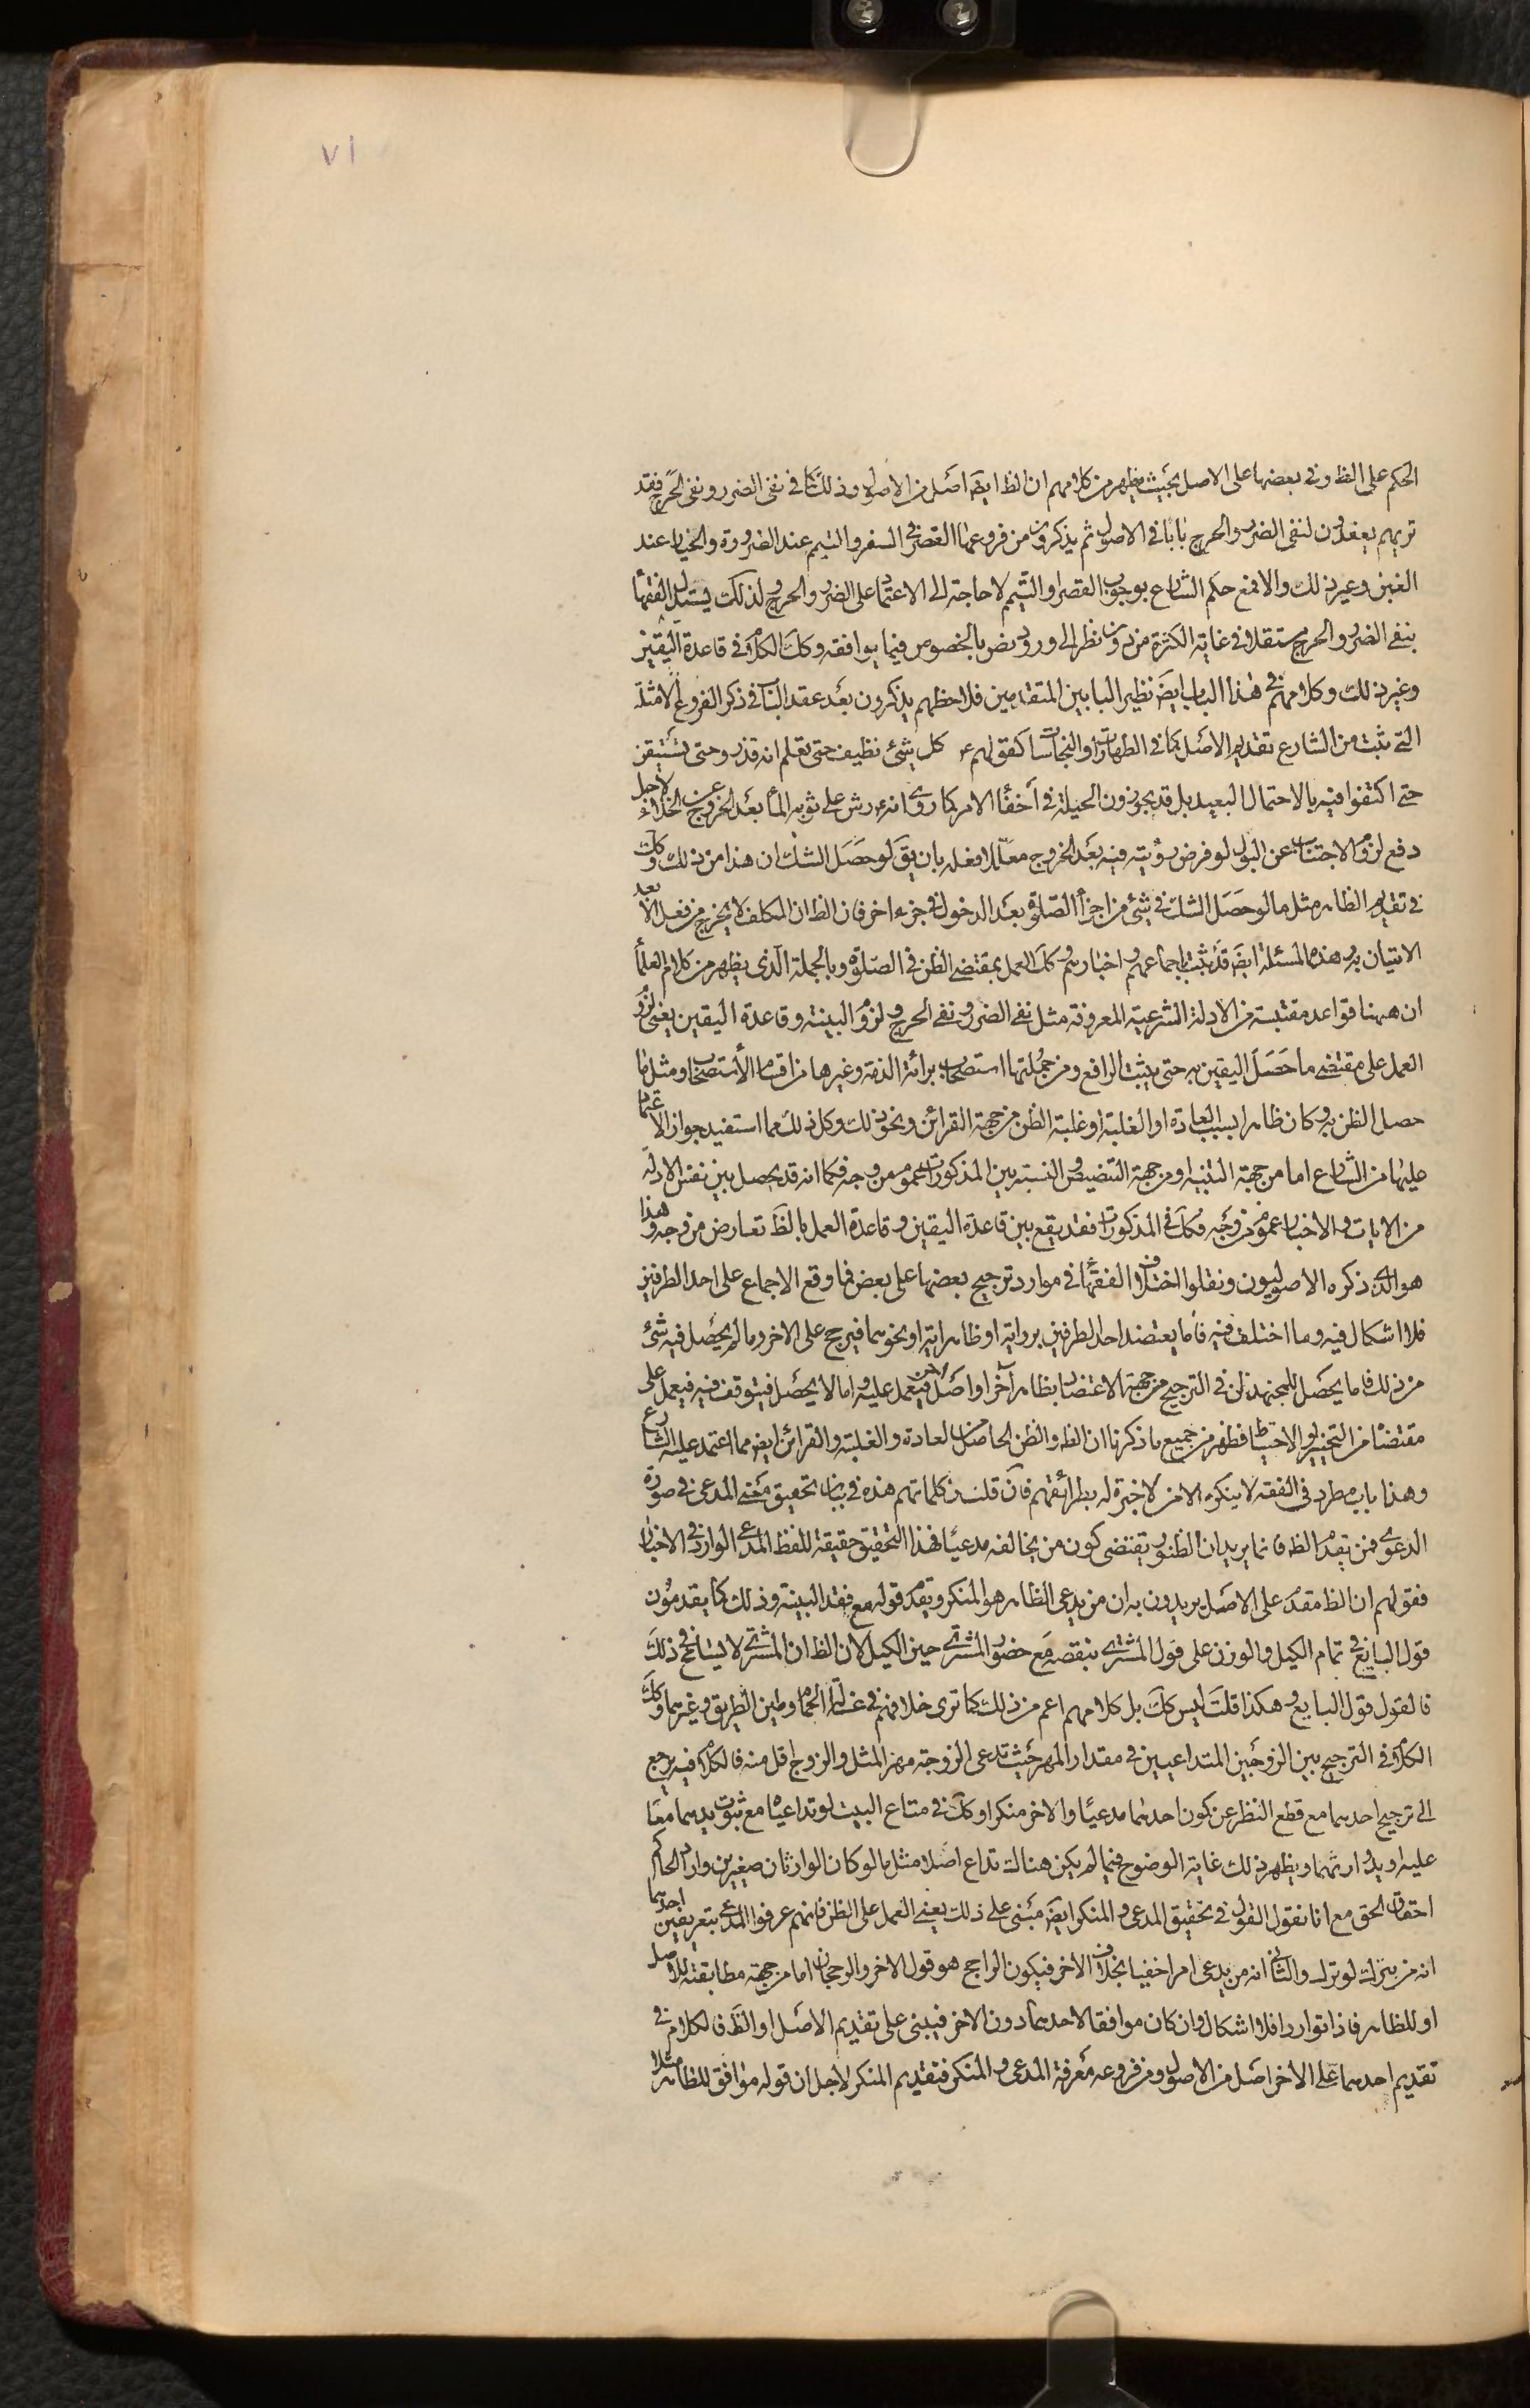 ٧١
الحكم على الظ وفى بعضها على الاصل بحيث يظهر من كلامهم ان الظ ايضَ اصل من الاصول وذلك كما فى نفى الضرر ونفى الحرج فقد
تريهم يعقدون لنفى الضرر والحرج بابا فى الاصول ثم يذكرون من فروعهما القصر فى السفر والتيمم عند الضرورة والخيار عند
الغبن وغير ذلك والا فمع حكم الشارع بوجوب القصر او التيمم لا حاجة الى الاعتماد على الضرر والحرج ولذلك يستدل الفقهآ
بنفى الضرر والحرج مستقلا فى غاية الكثرة من دون نظر الى ورود نص بالخصوص فيما يوافقه وكك الكلام فى قاعدة اليقين
وغير ذلك وكلامهم فى هذا الباب ايضَ نظير البابين المتقدمين فلاحظهم يذكرون بعد عقد الباب فى ذكر الفروع الامثلة
التى ثبت من الشارع تقديم الاصل كما فى الطهارات او النجاسات كقولهم ع كل شئ نظيف حتى تعلم انه قذر وحتى تستيقن
حتى اكتفوا فيه بالاحتمال البعيد بل قد يجوزون الحيلة فى اخفآ الامر كما روى انه ع رش على ثوبه المآ بعد الخروج عن الخلاء لاجل
دفع لزوم الاجتناب عن البول لو فرض رؤيته فيه بعد الخروج معللا فعله بان يقَ لو حصل الشك ان هذا من ذلك وكك
فى تقديم الظاهر مثل ما لو حصل الشك فى شئ من اجزآ الصلوة بعد الدخول فى جزء اخر فان الظ ان المكلف لا يخرج من فعل الا بعد
الاتيان به وهذه المسئلة ايضَ قد ثبت باجماعهم واخبارهم وكك العمل بمقتضى الظن فى الصلوة وبالجملة الذى يظهر من كلام العلمآ
ان ههنا قواعد مقتبسة من الادلة الشرعية المعروفة مثل نفى الضرر ونفى الحرج ولزوم البينة وقاعدة اليقين يعنى لزوم
العمل على مقتضى ما حصل اليقين به حتى يثبت الرافع ومن جملتها استصحاب برائة الذمة وغيرها من اقسام الاستصحاب ومثل ما
حصل الظن به وكان ظاهرا بسبب العادة او الغلبة او غلبة الظن من جهة القرائن ونحو ذلك وكل ذلك مما استفيد جواز الاعتماد
عليها من الشارع اما من جهة التنبيه او من جهة التنصيص والنسبة بين المذكورات عموم من وجه فكما انه قد يحصل بين نفس الادلة
من الايات والاخبار عموم من وجه فكك فى المذكورات فقد يقع بين قاعدة اليقين وقاعدة العمل بالظ تعارض من وجه وهذا
هو الذى ذكره الاصوليون ونقلوا اختلاف الفقهآ فى موارد ترجيح بعضها على بعض فما وقع الاجماع على احد الطرفين
فلا اشكال فيه وما اختلف فيه فاما يعتضد احد الطرفين برواية او ظاهر اية او نحوهما فيرجح على الاخر وما لم يحصل فيه شئ
من ذلك فاما يحصل للمجتهد ظن فى الترجيح من جهة الاعتضاد بظاهر آخر او اصل اخر فيعمل عليه واما لا يحصل فيتوقف فيه فيعمل على
مقتضاه من التخيير او الاحتياط فظهر من جميع ما ذكرنا ان الظ والظن الحاصل من العادة والغلبة والقرائن ايضَ مما اعتمد عليه الشارع
وهذا باب مطرد فى الفقه لا ينكره الا من لا خبرة له بطرائقهم فان قلت ان كلماتهم هذه فى بيان تحقيق معنى المدعى فى صورة
الدعوى فمن يقدم الظ فانما يريد ان الظنور يقتضى كون من يخالفه مدعيا فهذا التحقيق حقيقة للفظ المدعى الوارد فى الاخبار
فقولهم ان الظ مقدم على الاصل يريدون به ان من يدعى الظاهر هو المنكر ويقدم قوله مع فقد البينة وذلك كما يقدمون
قول البايع فى تمام الكيل والوزن على قول المشترى بنقصه مع حضور المشترى حين الكيل لان الظ ان المشترى لا يسامح فى ذلك
فالقول قول البايع وهكذا قلت ليس كك بل كلامهم اعم من ذلك كما ترى خلافهم فى غسالة الحمام وطين الطريق وغيرهما وكك
الكلام فى الترجيح بين الزوجين المتداعيين فى مقدار المهر حيث تدعى الزوجة مهر المثل والزوج اقل منه فالكلام فيه يرجع
الى ترجيح احدهما مع قطع النظر عن كون احدهما مدعيا والاخر منكرا وكك فى متاع البيت لو تداعياه مع ثبوت يدهما معا
عليه او يد وارثهما ويظهر ذلك غاية الوضوح فيما لم يكن هنالك تداع اصلا مثل ما لو كان الوارثان صغيرين واراد الحاكم
احقاق الحق مع انا نقول القول فى تحقيق المدعى والمنكر ايضَ مبتنى على ذلك يعنى العمل على الظن فانهم عرفوا المدعى بتعريفين احدهما
انه من يترك لو ترك والثانى انه من يدعى امرا خفيا بخلاف الاخر فيكون الراجح هو قول الاخر والرجحان اما من جهة مطابقته للاصل
او للظاهر فاذا تواردا فلا اشكال وان كان موافقا لاحدهما دون الاخر فيبنى على تقديم الاصل او الظ فالكلام فى
تقديم احدهما على الاخر اصل من الاصول ومن فروعه معرفة المدعى والمنكر فتقديم المنكر لاجل ان قوله موافق للظاهر مثلا